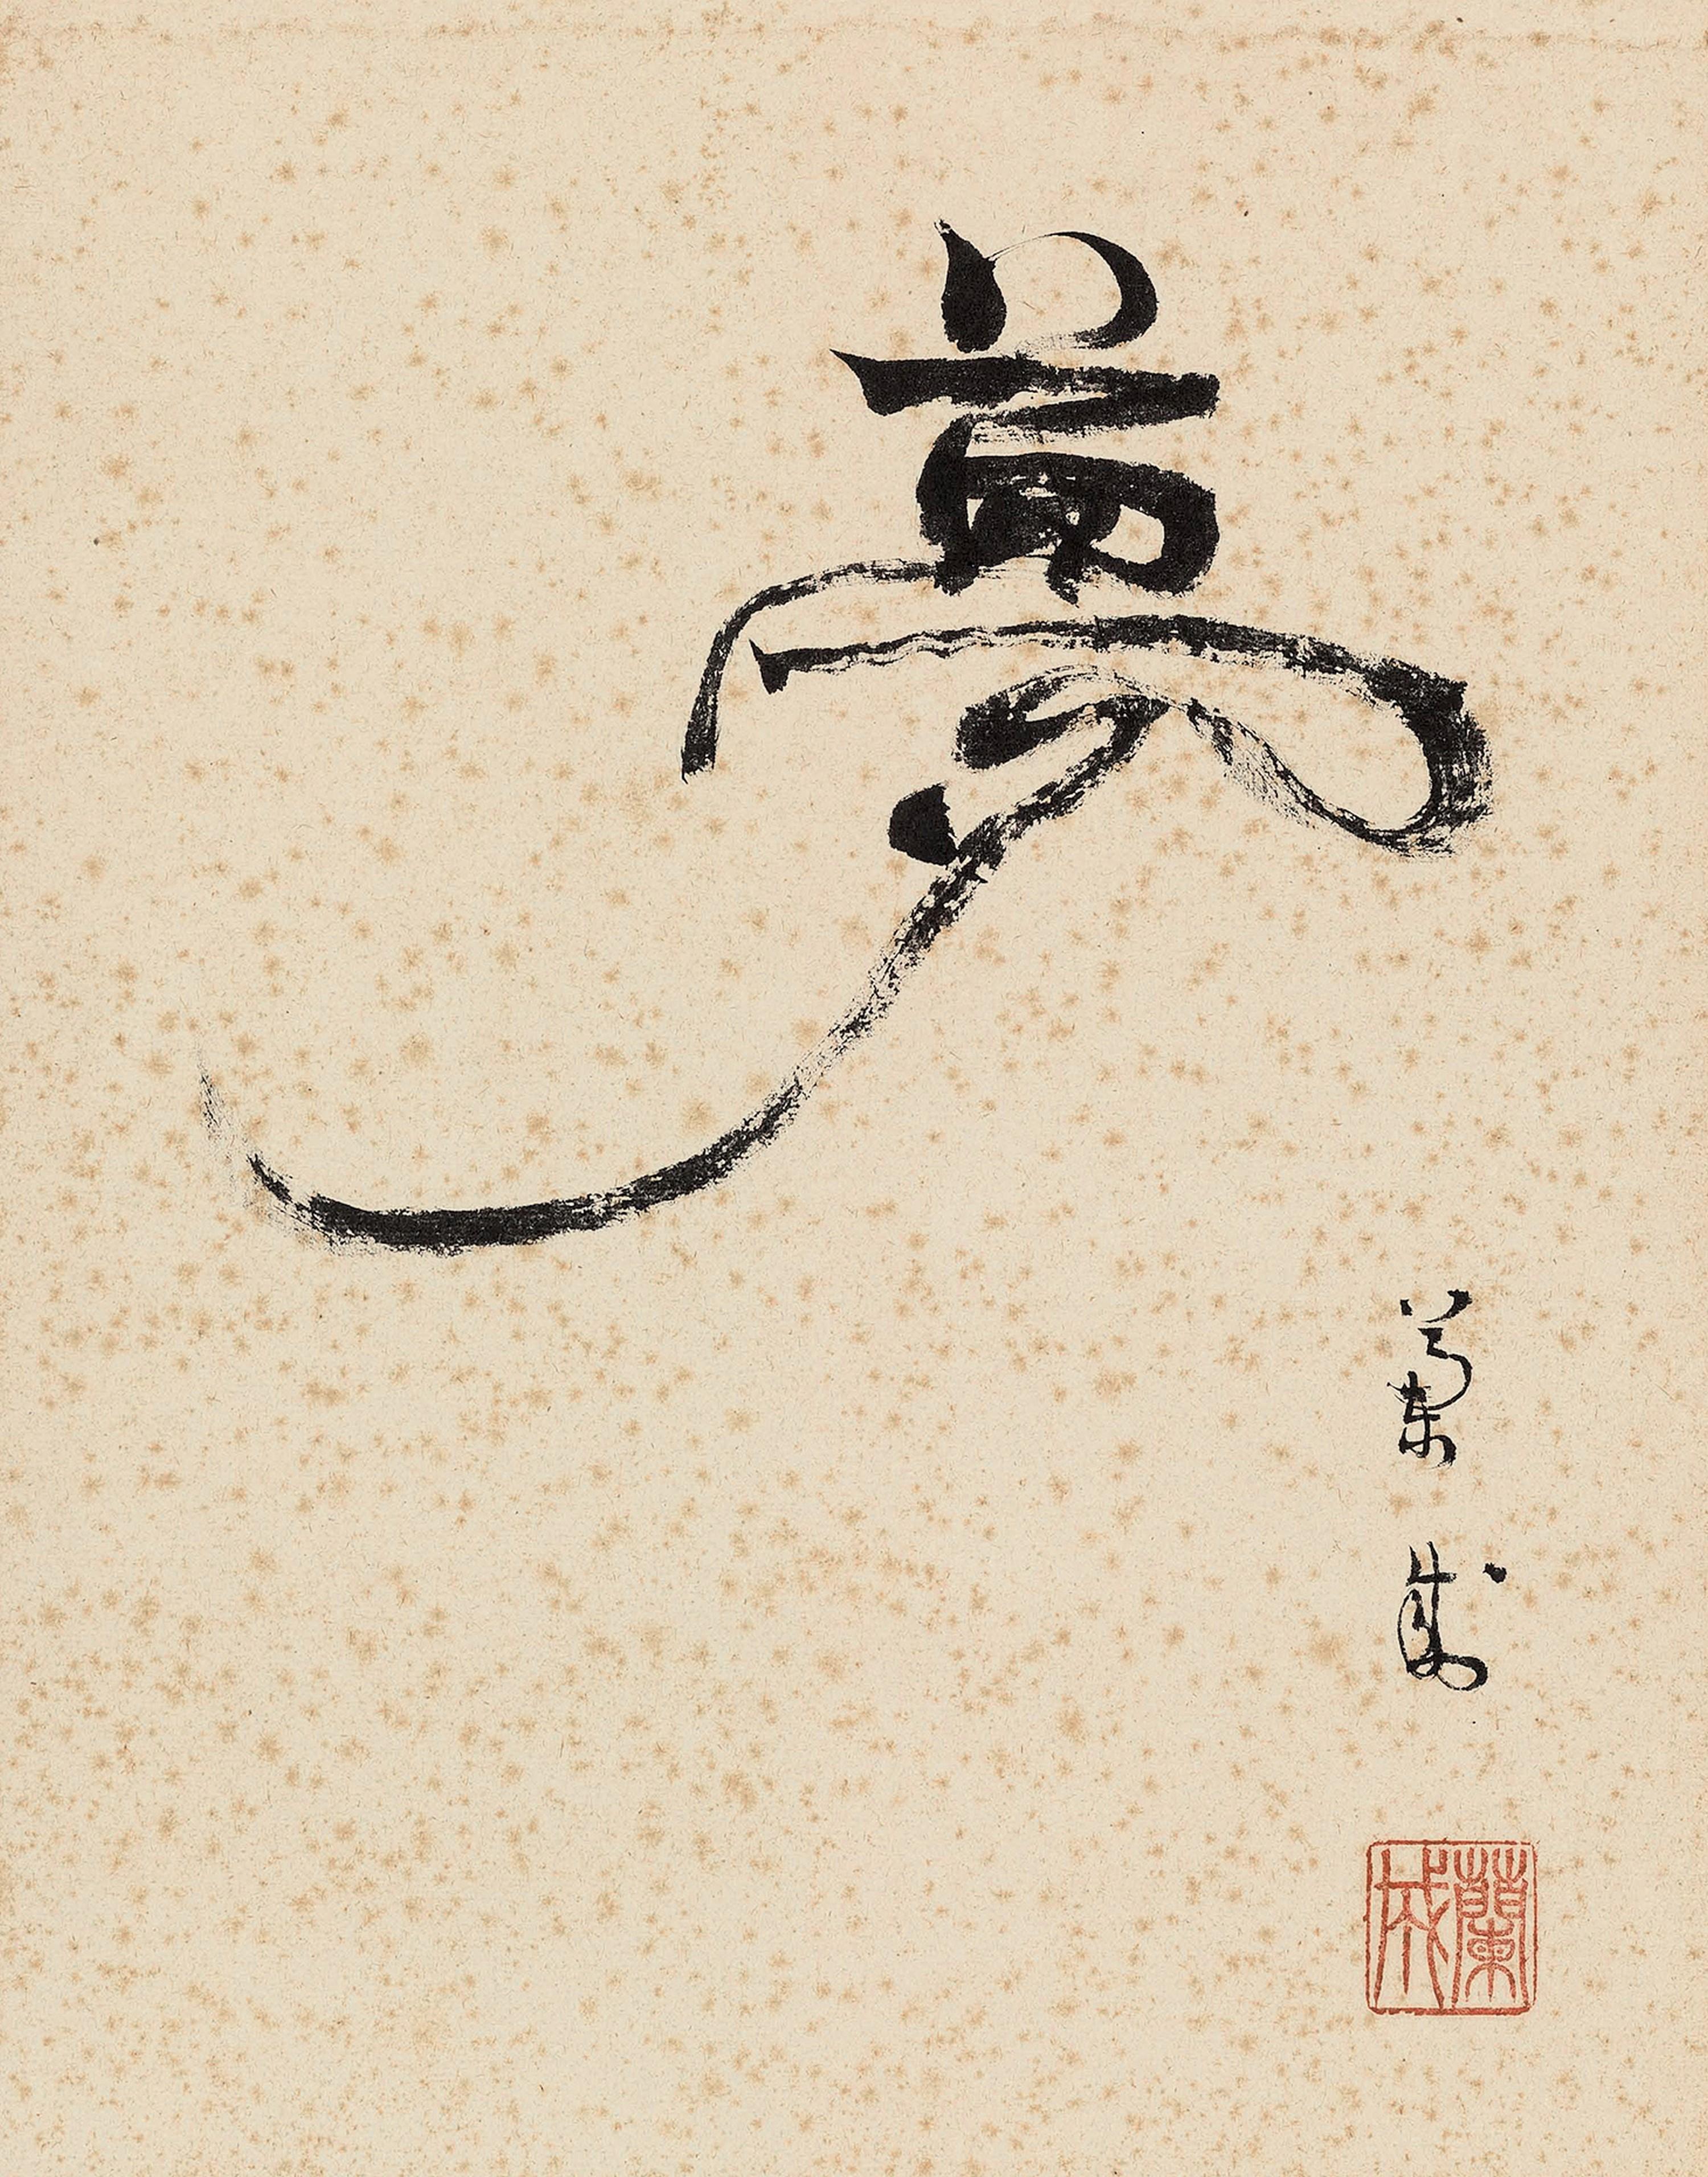 夢
蘭成
蘭成